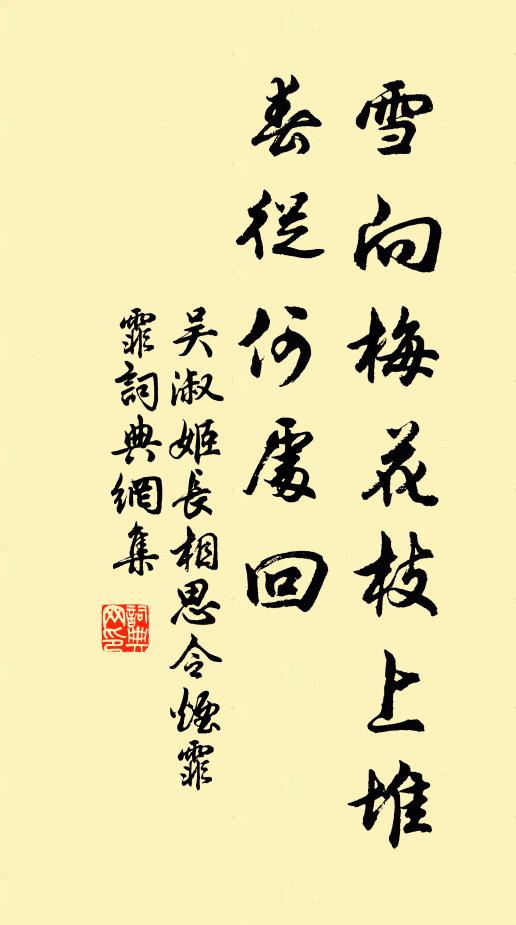 雪向梅花枝上堆
春從何處回
吳淑姬長相思令煙霏
霏詞典網集
詞典網印